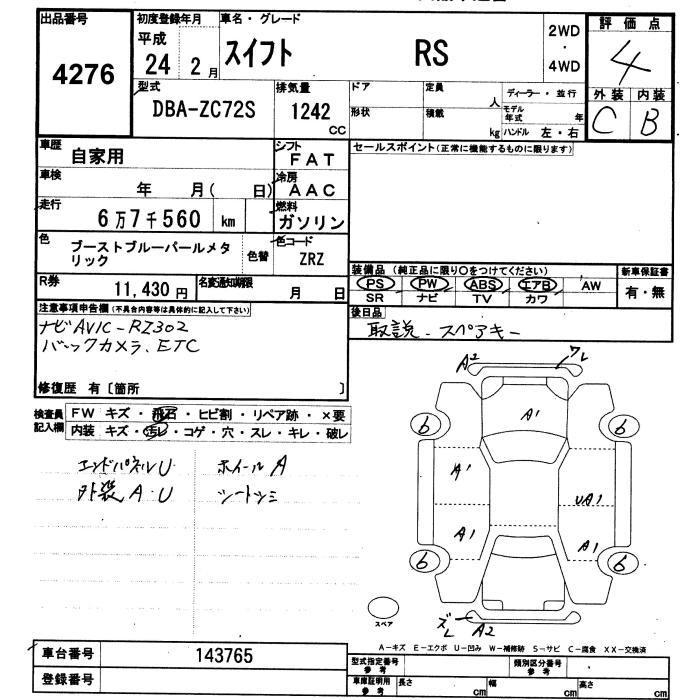 出品番号
4276
初度登録年月
平成
24 2月
車名・グレード
スイフト RS
2WD
・
4WD
評価点
4
外装 内装
C B
型式
DBA-ZC72S
排気量
1242
CC
ドア
形状
定員 人
積載 kg
ディーラー・並行
モデル年式 年
ハンドル 左・右
車歴
自家用
シフト
FAT
セールスポイント(正常に機能するものに限ります)
車検
年 月( 日)
冷房
AAC
走行
6万7千560 km
燃料
ガソリン
色
ブーストブルーパールメタ
リック
色替
色コード
ZRZ
装備品(純正品に限り○をつけてください)
PS PW ABS エアB AW
SR ナビ TV カワ
新車保証書
有・無
R券
11,430円
名変通知期限
月 日
後日品
取説、スペアキー
注意事項申告欄(不具合内容等は具体的に記入して下さい)
ナビAVIC-RZ302
バックカメラ、ETC
修復歴 有〔箇所 〕
検査員
記入欄
FW キズ・飛石・ヒビ割・リペア跡・×要
内装 キズ・汚レ・コゲ・穴・スレ・キレ・破レ
エンドパネルU ホイールA
外装A・U シートシミ
A2 ワレ
A1
6 6
A1
UA1
A1 A1
6 6
スペア
ズレ A2
A-キズ E-エクボ U-凹み W-補修跡 S-サビ C-腐食 XX-交換済
車台番号
143765
登録番号
型式指定番号
参考
類別区分番号
参考
車庫証明用
参考
長さ cm
幅 cm
高さ cm